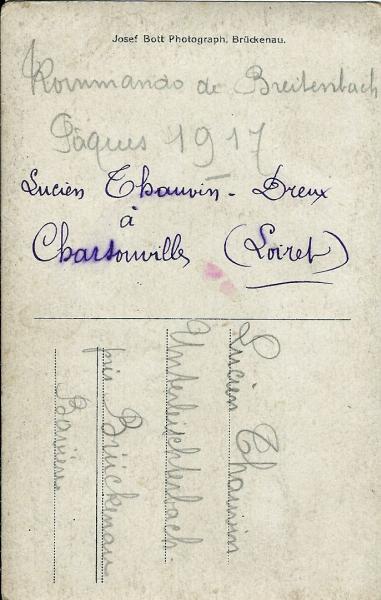 Josef Bott Photograph, Brückenau.
Kommando de Breitenbach
Pâques 1917
Lucien Chauvin - Dreux
à
Charsonville (Loiret)
Lucien Chauvin
Unterleichtersbach.
près Brückenau
Bavière